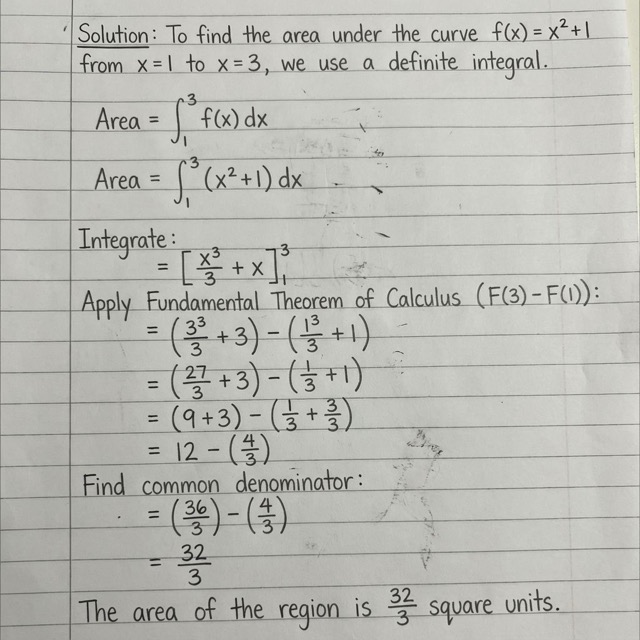 Solution: To find the area under the curve f(x) = x²+1
from x=1 to x=3, we use a definite integral.
Area = ∫₁³ f(x) dx
Area = ∫₁³ (x²+1) dx
Integrate:
= [x³/3 + x]₁³
Apply Fundamental Theorem of Calculus (F(3)-F(1)):
= (3³/3 + 3) - (1³/3 + 1)
= (27/3 + 3) - (1/3 + 1)
= (9+3) - (1/3 + 3/3)
= 12 - (4/3)
Find common denominator:
= (36/3) - (4/3)
= 32/3
The area of the region is 32/3 square units.